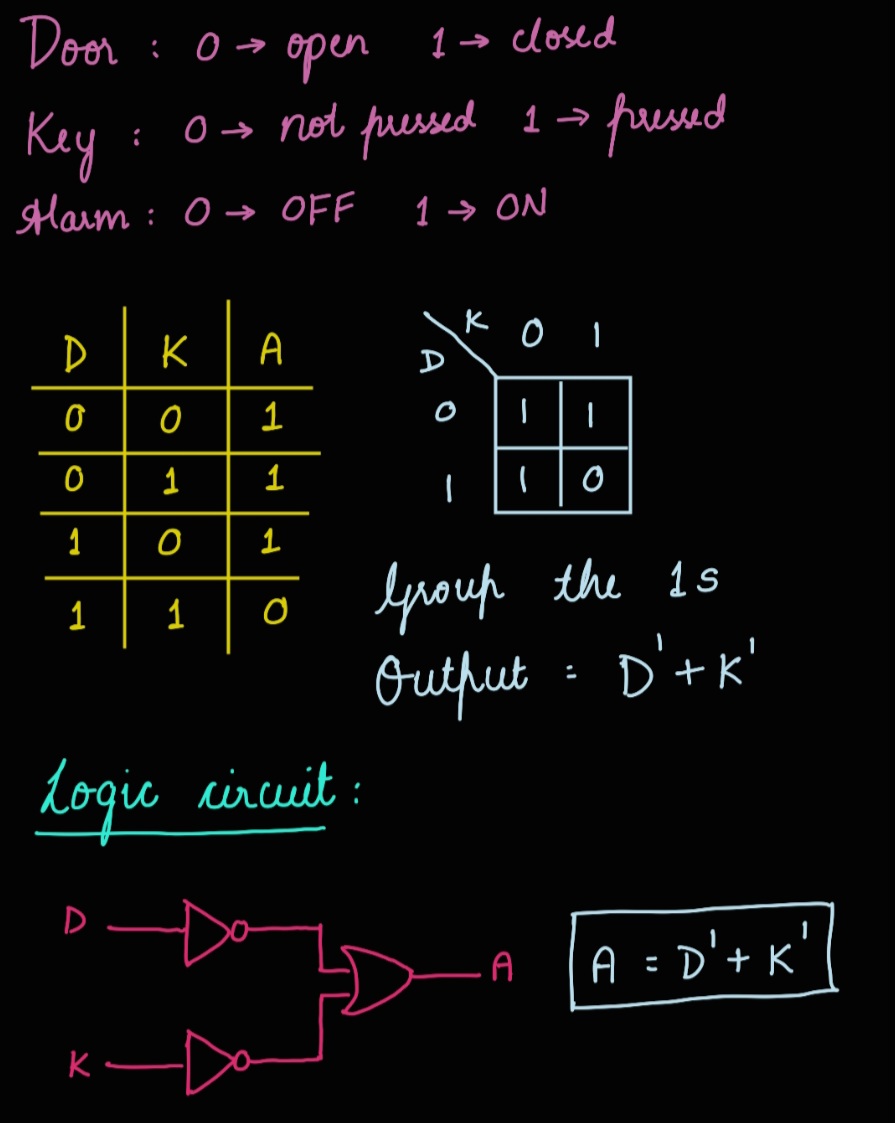 Door : 0 → open 1 → closed
Key : 0 → not pressed 1 → pressed
Alarm : 0 → OFF 1 → ON
D K A
0 0 1
0 1 1
1 0 1
1 1 0
K 0 1
D
0 1 1
1 1 0
Group the 1s
Output = D' + K'
Logic circuit :
D
A
K
A = D' + K'